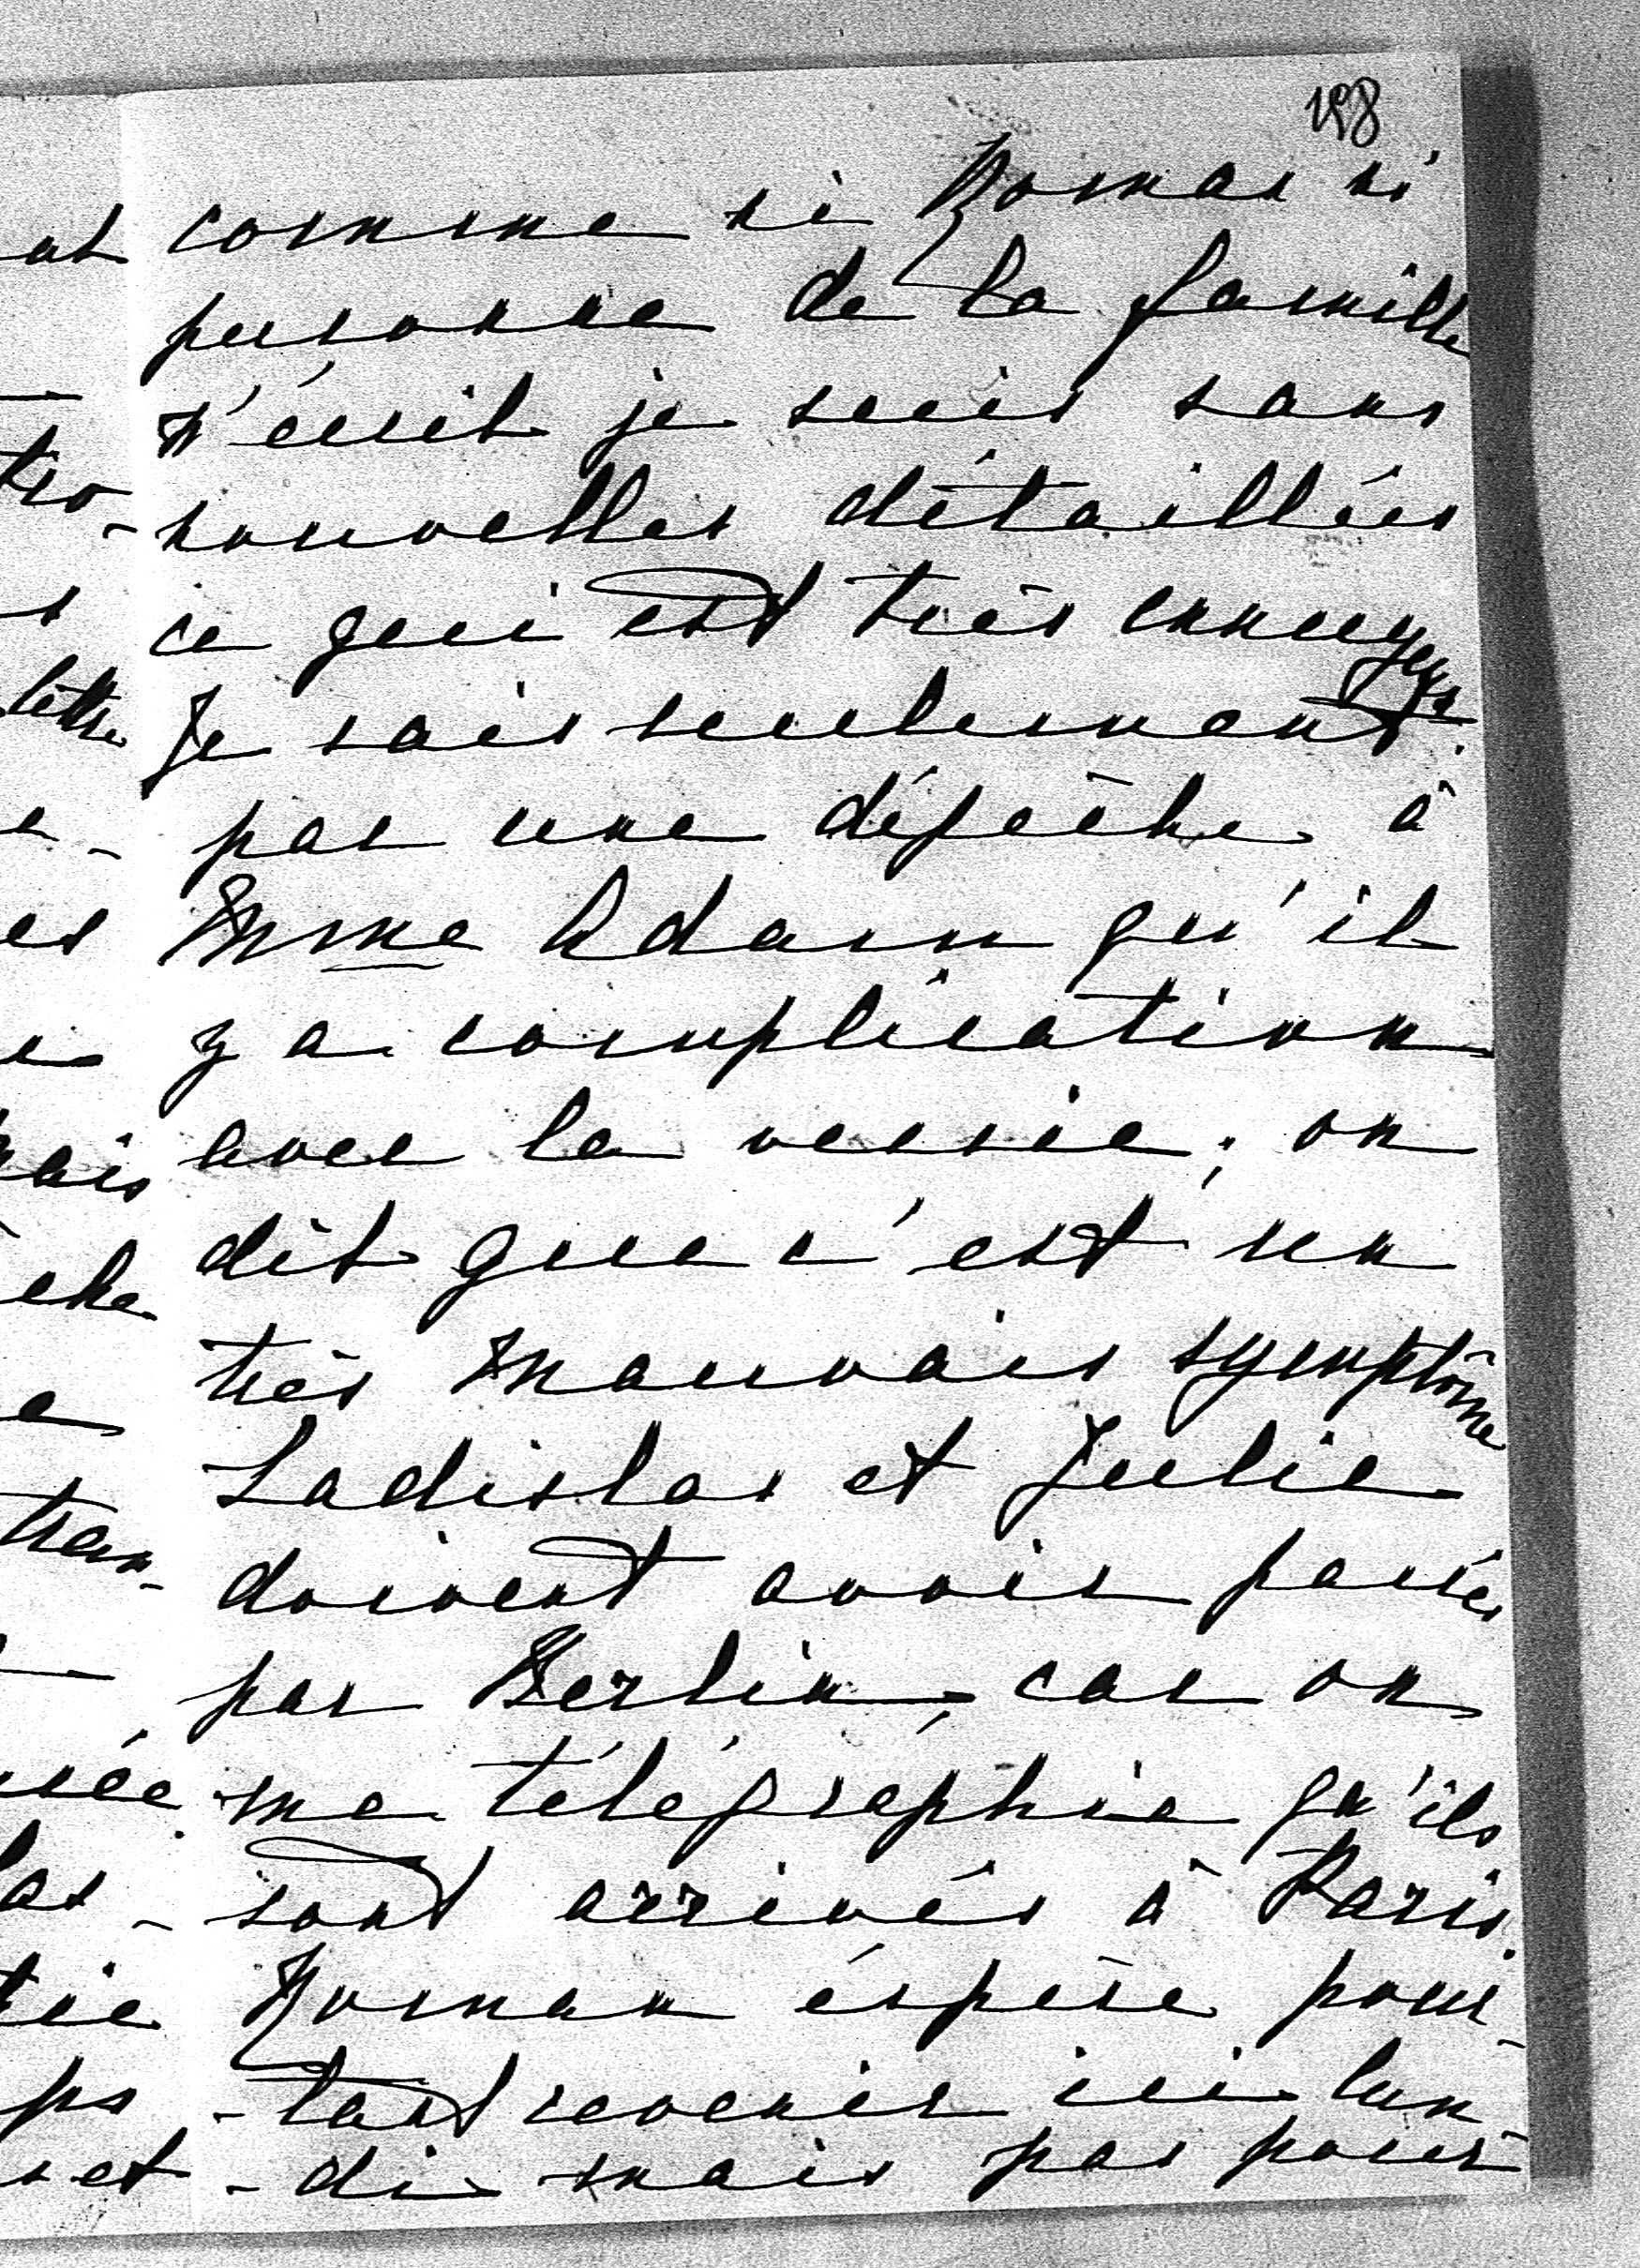 198
comme ni Roman ni
personne de la famille
n'écrit je suis sans
nouvelles détaillées
ce qui est très ennuyeux.
Je sais seulement
par une dépêche à
Mme Adam qu'il
y a complication
avec la vessie; on
dit que c'est un
très mauvais symptôme
Ladislas et Julie
doivent avoir passés
par Berlin, car on
me télégraphie qu'ils
sont arrivés à Paris.
Roman éspère pour-
-tant revenir ici lun-
-di mais pas pour